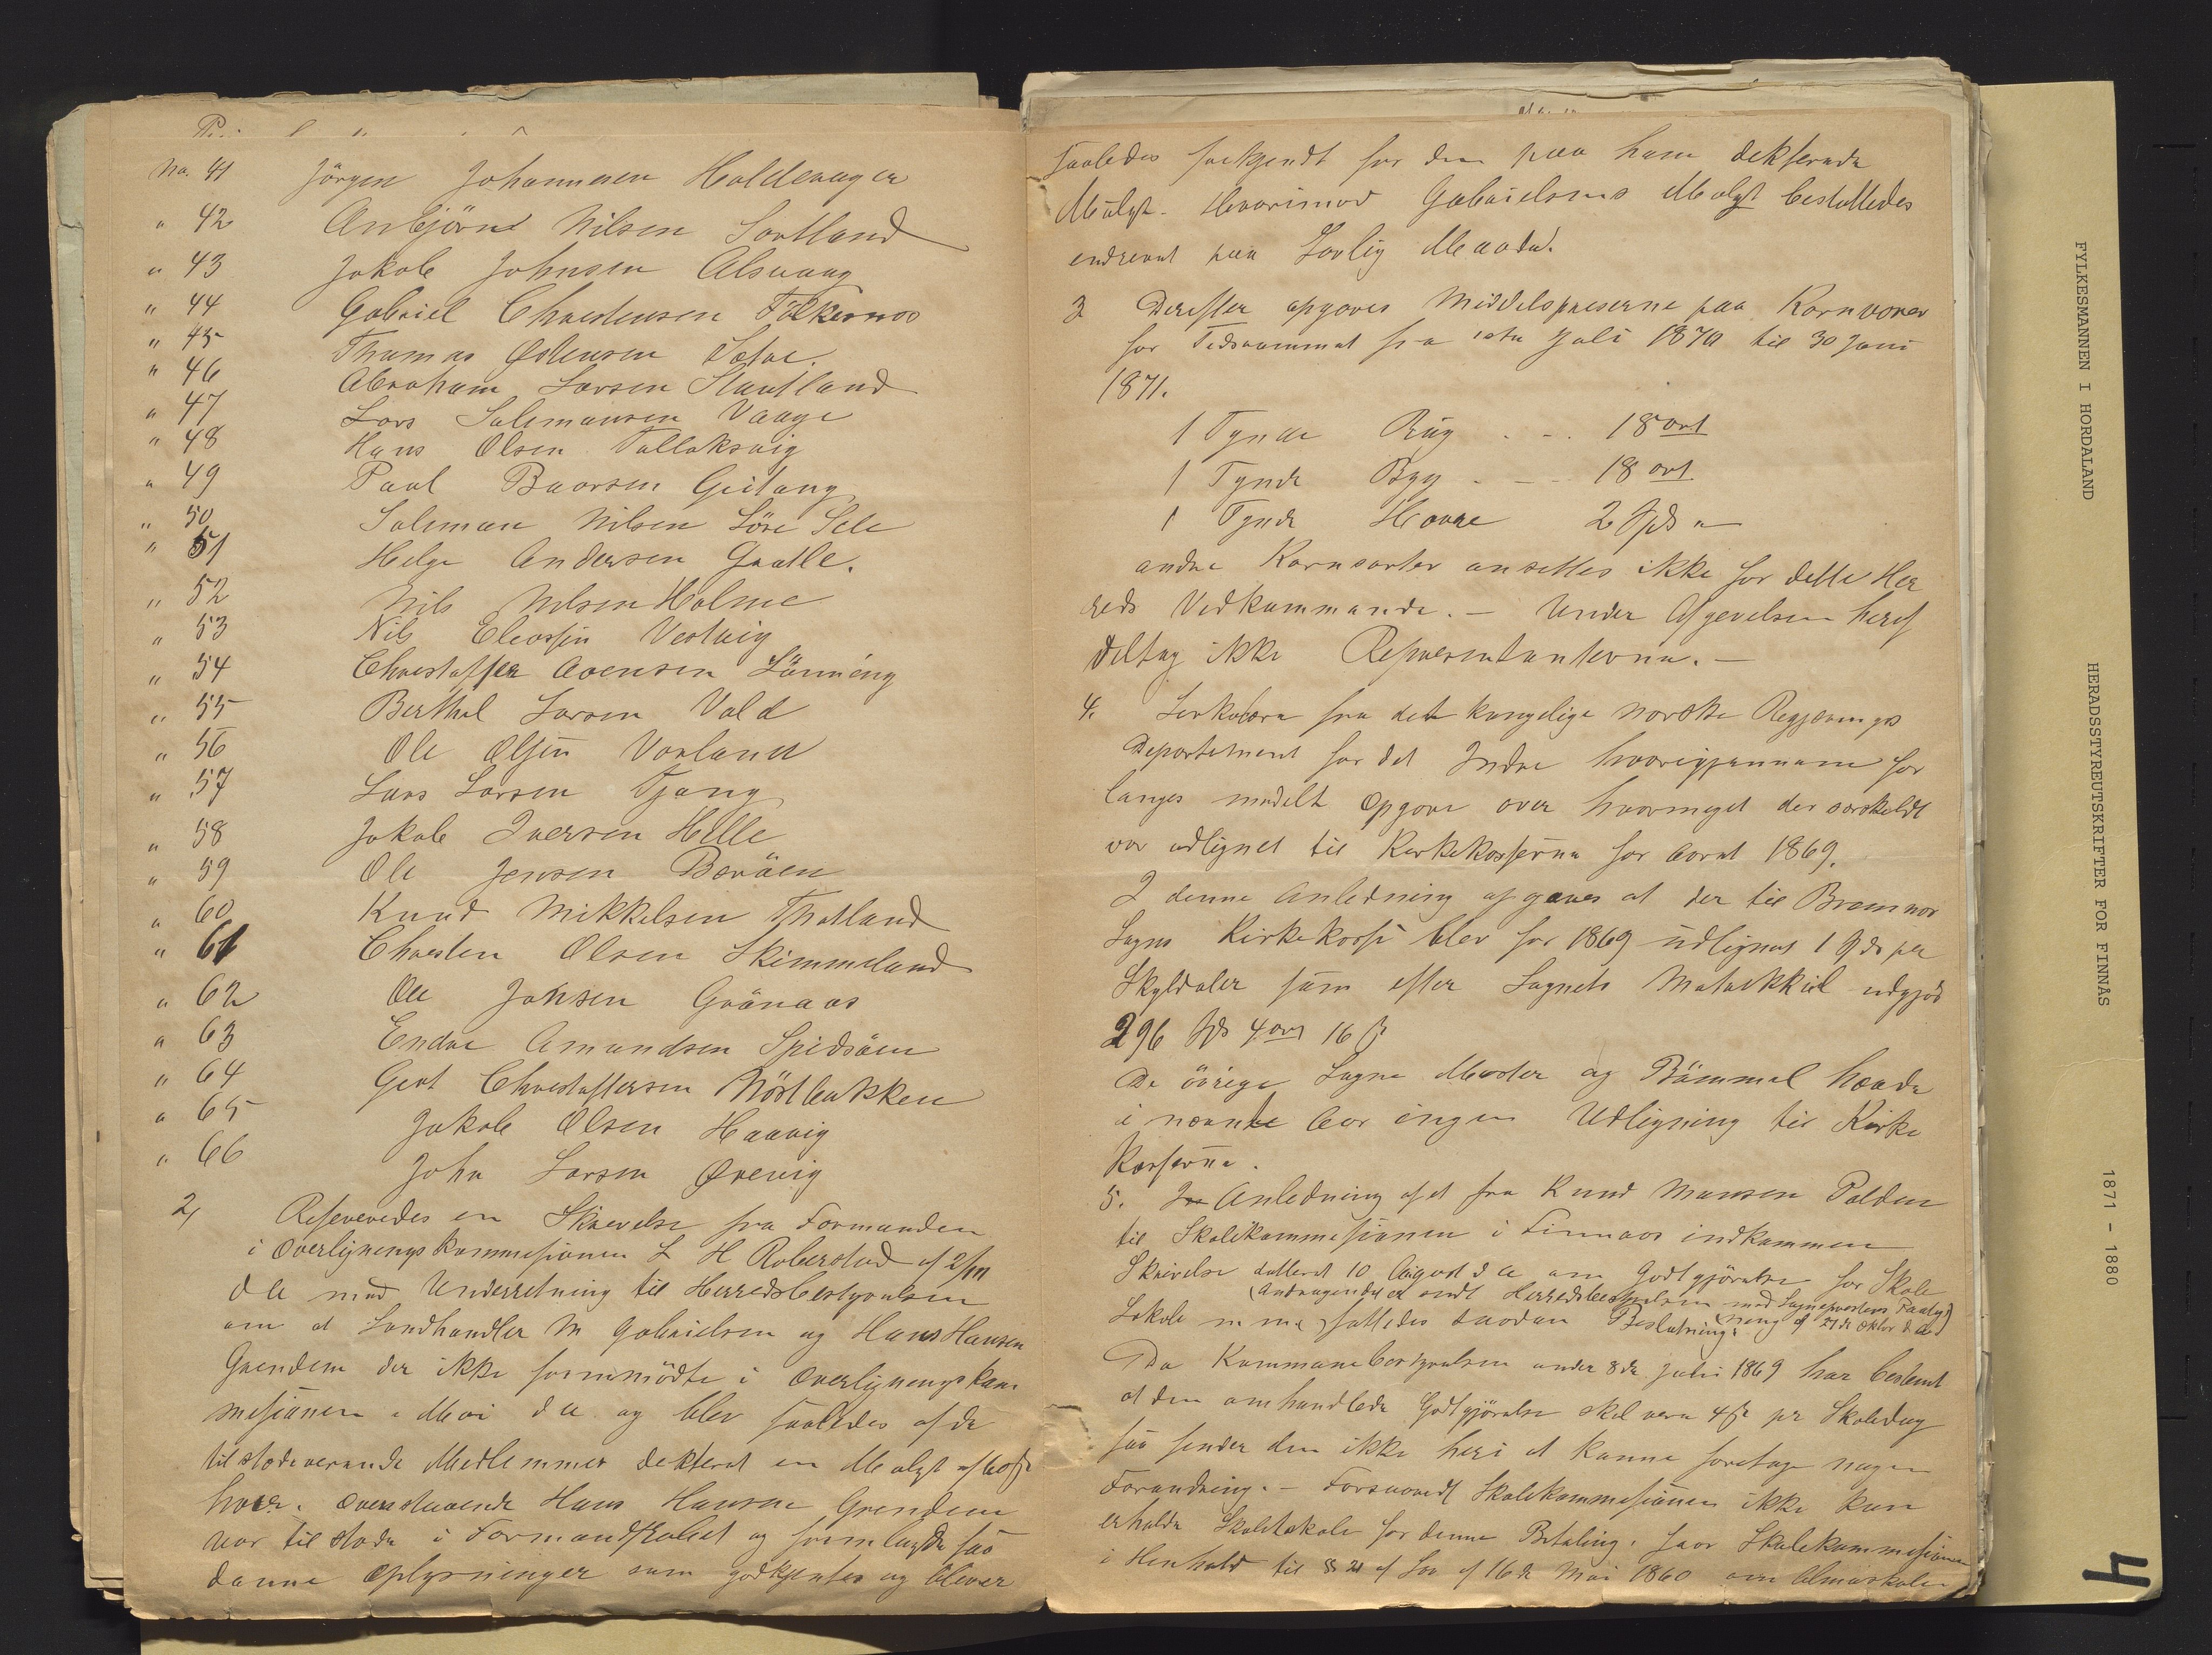 No. 41 Jörgen Johannesen Holdevagen
" 42 Anbjörn Nilsen Sortland
" 43 Jakob Johnsen Alsvaag
" 44 Gabriel Christensen Folkernos
" 45 Thomas Østensen Sætre.
" 46 Abraham Larsen Stautland
" 47 Lars Salemonsen Vaage
" 48 Hans Olsen Tollaksvig
" 49 Paul Baarsen Geitung
" 50 Salemon Nilsen Löre Sele
" 51 Helge Andersen Grutle.
" 52 Nils Nilsen Holme
" 53 Nils Eleasen Vestvig
" 54 Christoffer Arensen Lönning
" 55 Berthel Larsen Vold
" 56 Ole Olsen Vorland
" 57 Lars Larsen Tjong
" 58 Jakob Iversen Hille
" 59 Ole Jensen Beröen
" 60 Knud Mikkelsen Thotland
" 61 Christen Olsen Skimmeland
" 62 Ole Johsen Grönaas
" 63 Endre Amundsen Spidsöen
" 64 Gert Christoffersen Nöstbakken
" 65 Jakob Olsen Haavig
" 66 John Larsen Ørevig
2, Refereredes en Skrivelse fra Formanden
i Overligningskommisionen L H Roberstad af 2/
d A med Underretning til Herredsbestyrelsen
om at Landhandler M Gabrielsen og Hans Hansen
Grendem der ikke fremmödte i Overligningskom
misionen i Mai d A og blev saaledes af de
tilstedeværende Medlemmer dekteret en Mulgt af 60 ß
hver. Ovenstaaende Hans Hansen Grendem
var til stede i Formandskabet og fremlagde saa
danne Oplysninger som godkjentes og bliver
saaledes frikjendt for den paa ham dekterede
Mulgt. Hvorimod Gabrielsens Mulgt besluttedes
inddrevet paa Lovlig Maade.
3 Derefter opgaves Middelspriserne paa Kornvarer
for Tidsrommet fra 1ste Juli 1870 til 30 Juni
1871.
1 Tynde Rug . - . 18 ort
1 Tynde Byg . - - . 18 ort
1 Tynde Havre 2 Spd "
andre Kornsorter ansettes ikke for dette Her
reds Vedkommende. - Under Afgivelsen heraf
deltog ikke Repræsentanterne. -
4. Cirkulære fra det kongelige norske Regjerings
Departement for det Indre hvorigjennem for
langes meddelt Opgave over hvormeget der særskeldt
var udlignet til Kirkekasserne for Aaret 1869.
I denne Anledning opgaves at der til Bremnes
Sogns Kirkekasse blev for 1869 udlignet 1 Spd per
Skyldaler som efter Sognets Matrikkul udgjör
296 Spd 4 ort 16 ß
De övrige Sogne Moster og Bömmel havde
i nevnte Aar ingen Udligning til Kirke
kasserne.
5. I Anledning af et fra Knud Monsen Polden
til Skolekommisionen i Finnaas indkommen
Skrivelse datteret 10 August d A om Godtgjörelse for Skole
(Andragendet er sendt Herredsbestyrelsen med Sogneprestens Paateg
ning af 27de Oktbr d A)
Lokale m m fattedes saadan Beslutning:
Da Kommunebestyrelsen under 8de Juli 1869 har bestemt
at den omhandlede Godtgjörelse skal være 4 ß pr Skoledag
saa finder den ikke heri at kunne foretage nogen
Forandring. - Forsaavidt Skolekommisionen ikke kan
erholde Skolelokale for denne Betaling, faar Skolekommisionen
i Henhold til § 21 af Lov af 16de Mai 1860 om Almueskolen
FYLKESMANNEN I HORDALAND
HERADSSTYREUTSKRIFTER FOR FINNÅS
1871 - 1880
4